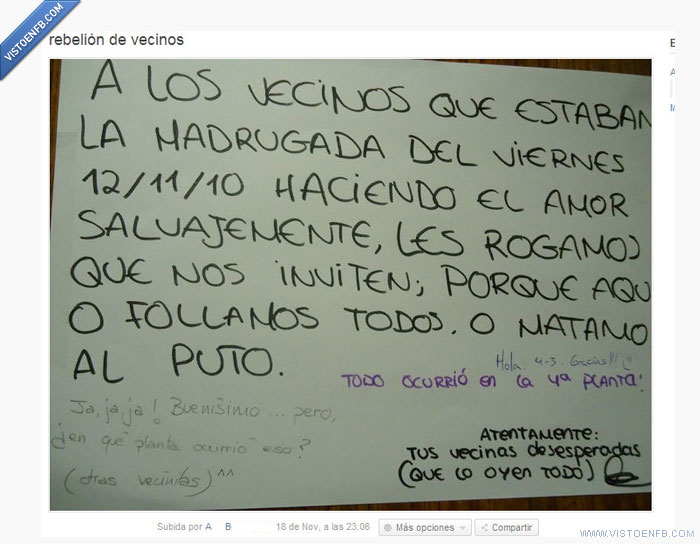 VISTOENFB.COM
rebelión de vecinos
E
A
M
A LOS VECINOS QUE ESTABAN
LA MADRUGADA DEL VIERNES
12/11/10 HACIENDO EL AMOR
SALVAJEMENTE, LES ROGAMOS
QUE NOS INVITEN; PORQUE AQU
O FOLLAMOS TODOS. O MATAMO
AL PUTO.
Hola: 4-3. Gracias!!! :)
TODO OCURRIÓ EN LA 4ª PLANTA!
Ja, ja, ja! Buenísimo... pero,
¿en qué "planta ocurrió" eso?
(otras vecinitas) ^^
ATENTAMENTE:
TUS VECINAS DESESPERADAS
(QUE LO OYEN TODO)
Subida por A B 18 de Nov, a las 23:06 Más opciones Compartir
WWW.VISTOENFB.COM